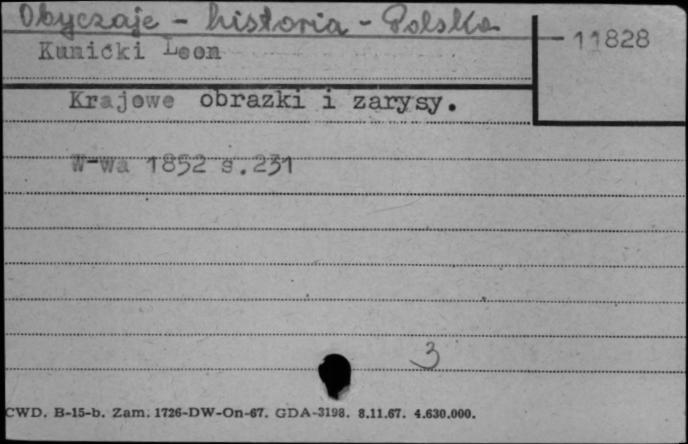 Obyczaje - historia - Polska
Kunicki Leon
- 11828
Krajowe obrazki i zarysy.
W-wa 1852 s.231
3
CWD. B-15-b. Zam. 1726-DW-On-67. GDA-3198. 8.11.67. 4.630.000.